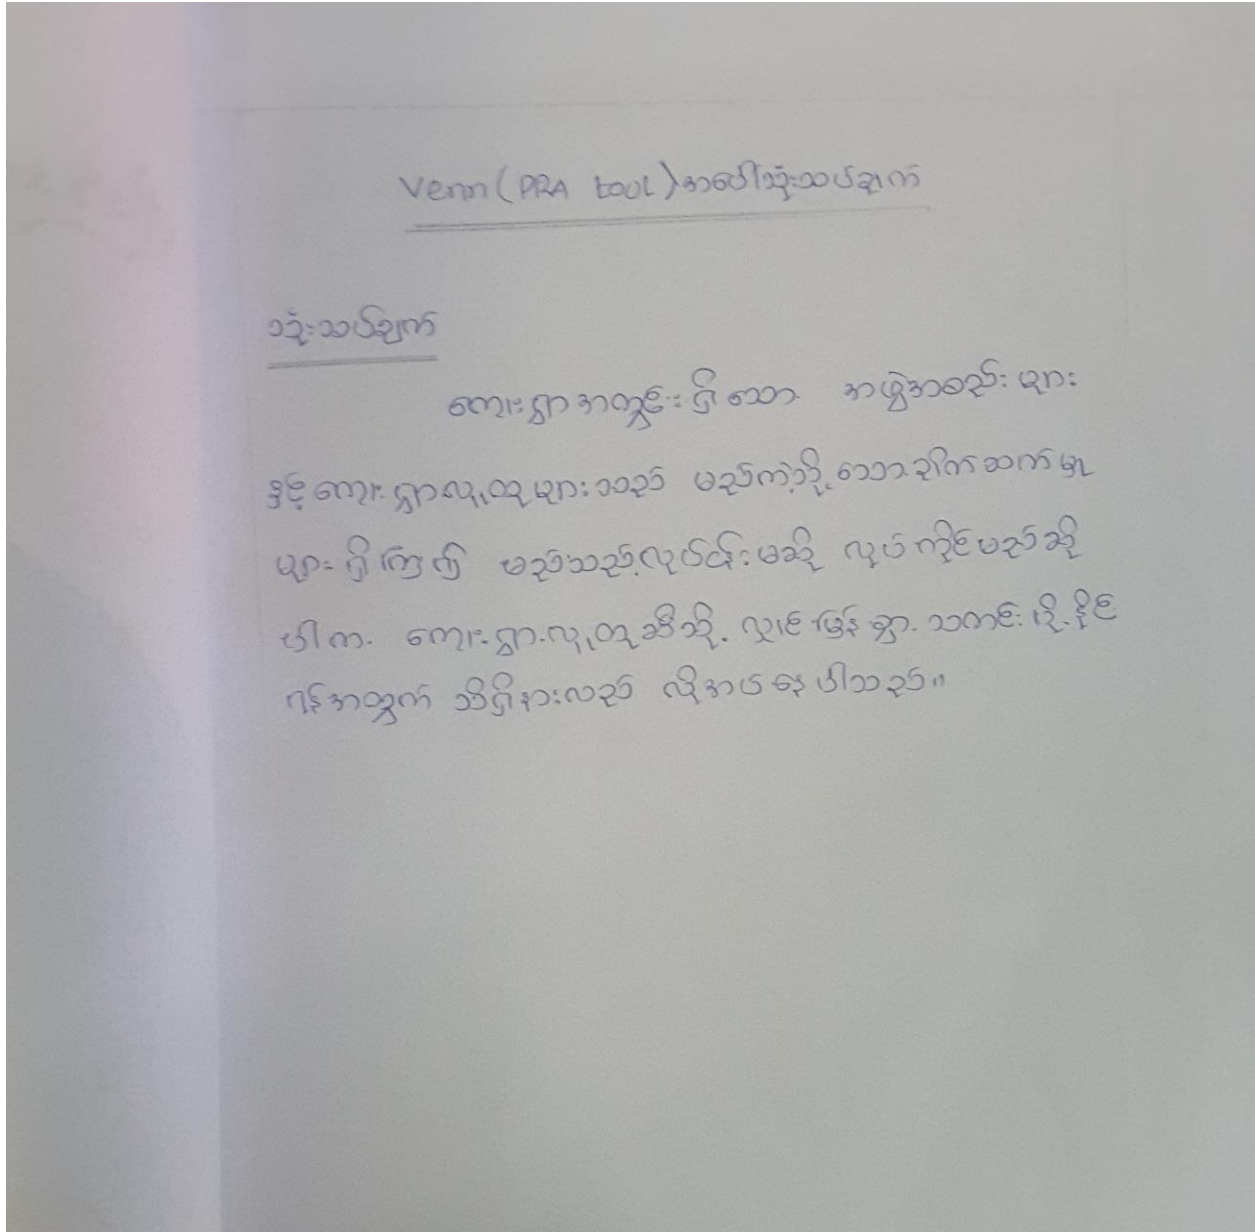 Venn (PRA tool) အပေါ်သုံးသပ်ချက်
သုံးသပ်ချက်
ကျေးရွာအတွင်းရှိသော အဖွဲ့အစည်းများ
နှင့် ကျေးရွာလူထုများသည် မည်ကဲ့သို့သော ချိတ်ဆက်မှု
များ ရှိကြ၍ မည်သည့်လုပ်ငန်းမဆို လုပ်ကိုင်မည်ဆို
ပါက ကျေးရွာလူထုဆီသို့ လျှင်မြန်စွာ သတင်းပို့နိုင်
ရန်အတွက် သိရှိနားလည် လိုအပ်နေပါသည်။